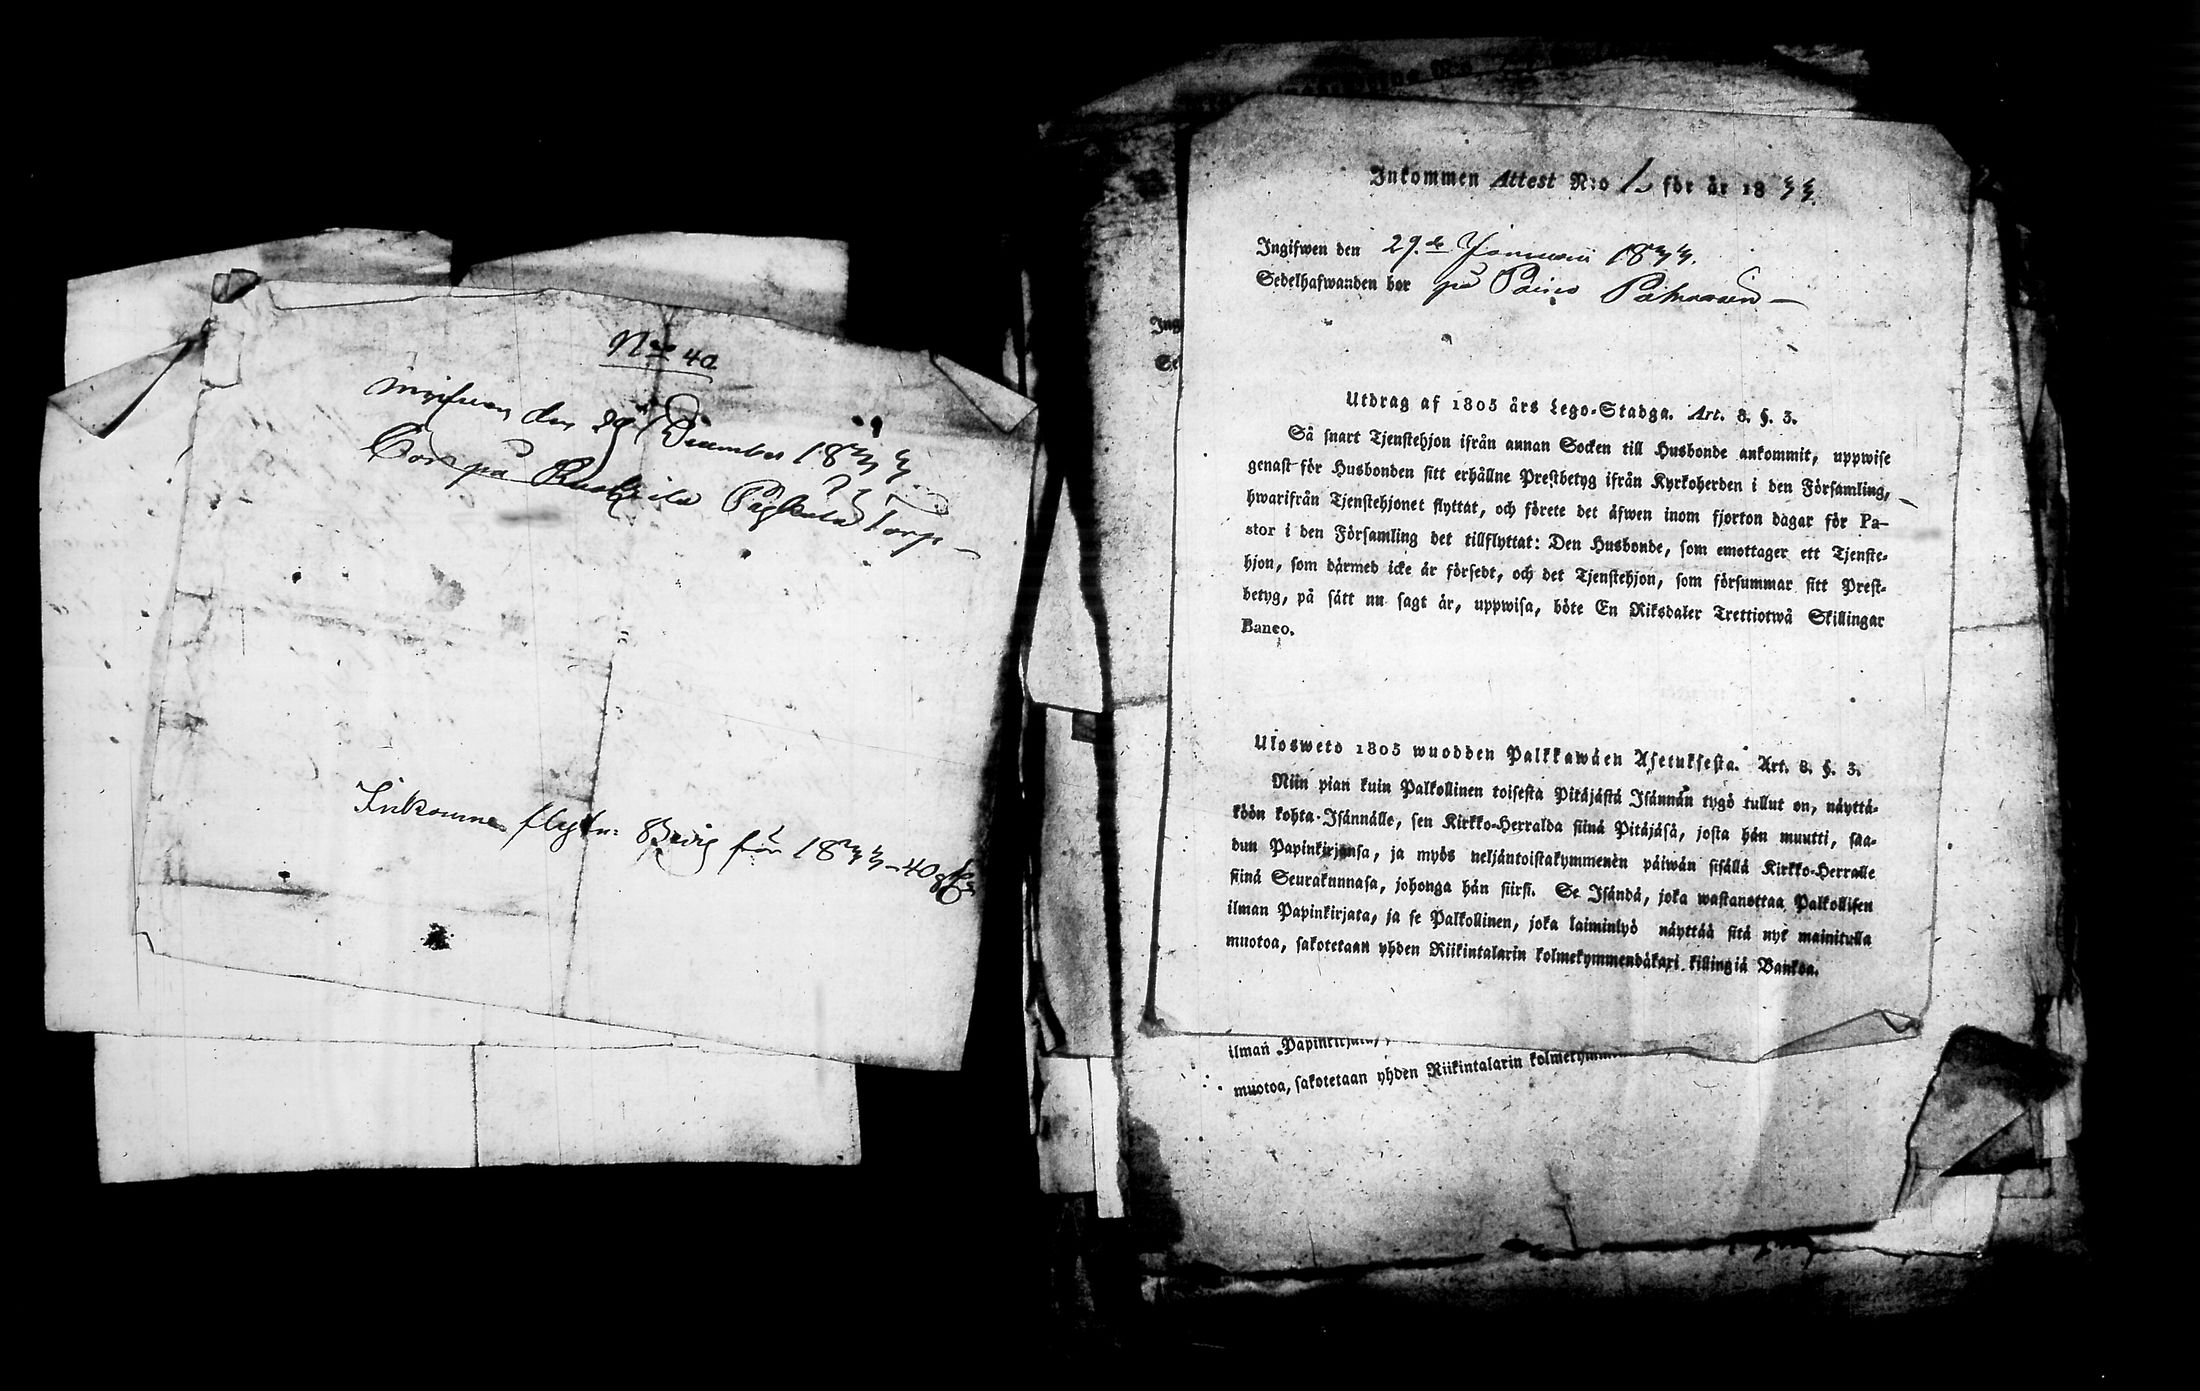 N:ro 40
Ingifven den 29 December 1833
Bor på Torp
Inkomne flyttn: Betyg för 1833 – 40
Inkommen Attest N:o 1. för år 1833.
Ingifwen den 29.de Januarii 1833.
Sedelhafwanden bor på
Utdrag af 1805 års Lego-Stadga. Art. 8. §. 3.
Så snart Tjenstehjon ifrån annan Socken till Husbonde ankommit, uppwise
genast för Husbonden sitt erhållne Prestbetyg ifrån Kyrkoherden i den Församling,
hwarifrån Tjenstehjonet flyttat, och förete det äfwen inom fjorton dagar för Pa-
stor i den Församling det tillflyttat: Den Husbonde, som emottager ett Tjenste-
hjon, som därmed icke är försedt, och det Tjenstehjon, som försummar sitt Prest-
betyg, på sätt nu sagt är, uppwisa, böte En Riksdaler Trettiotwå Skillingar
Banco.
Ulosweto 1805 wuodden Palkkawäen Asetuksesta. Art. 8. §. 3.
Niin pian kuin Palkollinen toisesta Pitäjästä Isännän tygö tullut on, näyttä-
köön kohta Isännälle, sen Kirkko-Herralda siinä Pitäjäsä, josta hän muutti, saa-
dun Papinkirjansa, ja myös neljäntoistakymmenen päiwän sisällä Kirkko-Herralle
siinä Seurakunnasa, johonga hän siirsi. Se Isändä, joka wastanottaa Palkollisen
ilman Papinkirjata, ja se Palkollinen, joka laiminlyö näyttää sitä nyt mainitulla
muotoa, sakotetaan yhden Riikintalarin kolmekymmendäkaxi killingiä Bankoa.
ilman Papinkirjata,
muotoa, sakotetaan yhden Riikintalarin